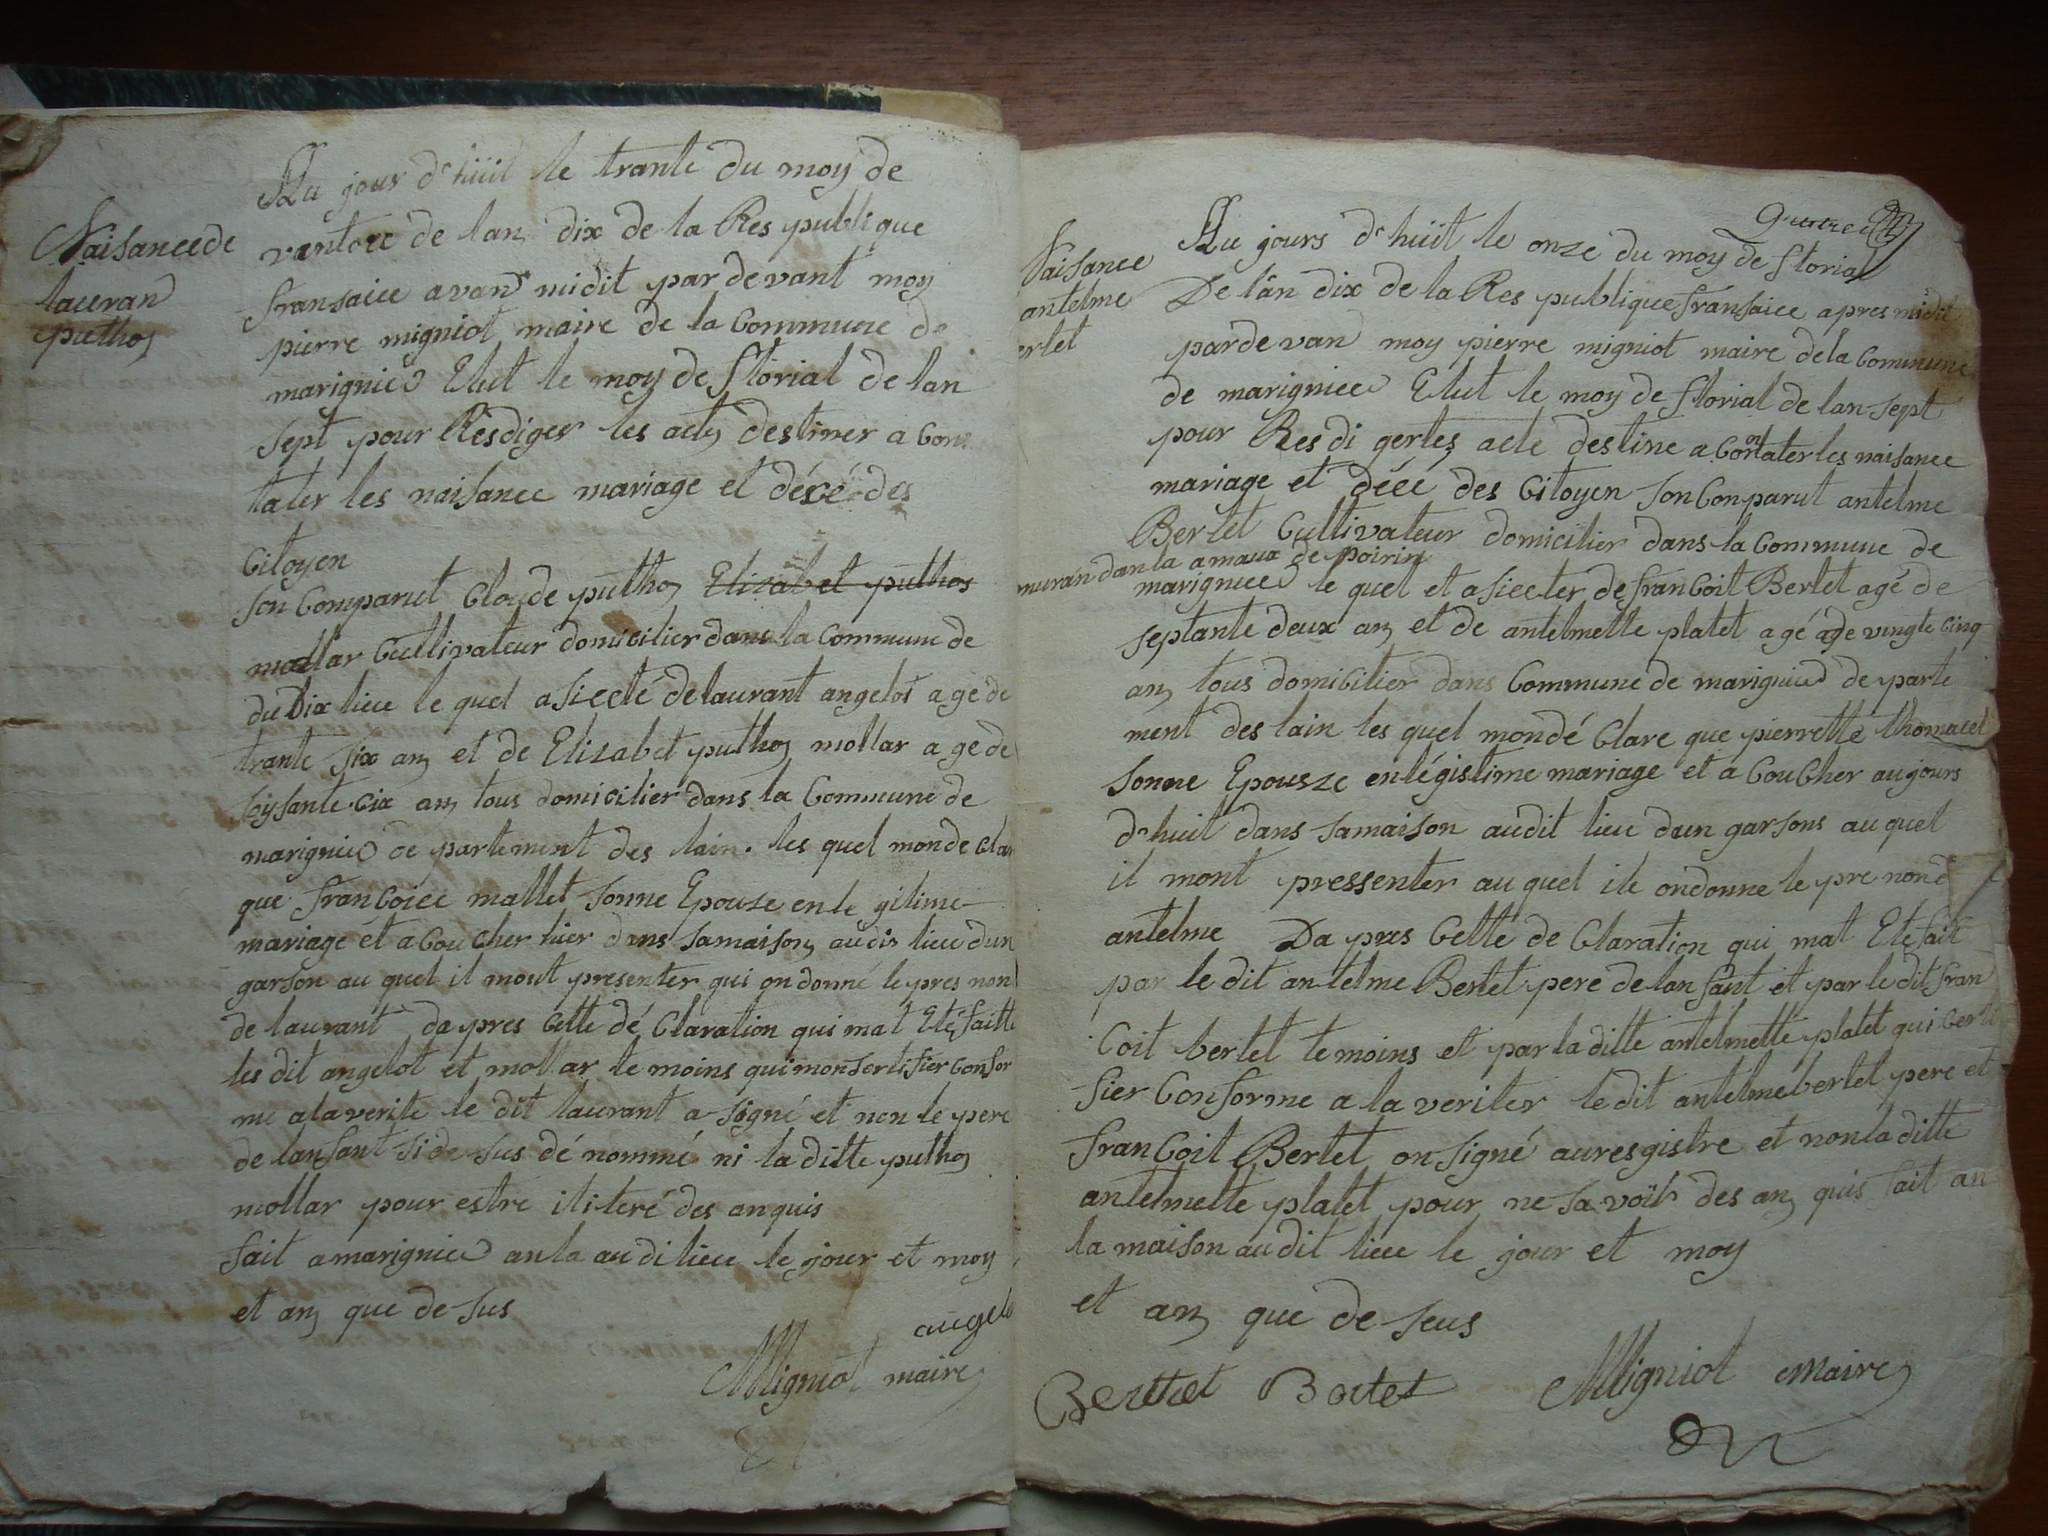 Naisance de
lauran
puthoz
Au jour d'huit le trante du moy de
vantoze de lan dix de la Res publique
fransaice avant midit par devant moy
pierre migniot maire de la Commune de
marignieu Elut le moy de florial de lan
sept pour Resdiger les actes destiner a Cons
tater les naisance mariage et décé des
Citoyen
son Comparut Cloude puthoz Elizabet puthos
mollar Cultivateur domicilier dans la Commune de
du Dix lieu le quel asiecté de laurant angelot agé de
trante six an et de Elizabet puthoz mollar agé de
soysante cix an tous domicilier dans la Commune de
marignieu de partement des lain. les quel mon de Clar
que francoice mallet sonne Epouze en le gitime
mariage et a Coucher hier dans samaison audis lieu dun
garson au quel il mont presenter qui on donné le pres nom
de laurant da pres Cette dé Claration qui mat Eté faitte
les dit angelot et mollar te moins qui mon sertifier Confor
me a la verite le dit laurant a signé et non le pere
de lanfant si de sus dé nommé ni la ditte puthoz
mollar pour estre ititeré des an quis
fait a marignieu an la audi lieu le jour et moy
et an que de sus
angelo
Migniot maire
quatre
Naisance
antelme
erlet
Au jours d'huit le onze du moy de florial
De lan dix de la Res publique fransaice apres midit
par de van moy pierre migniot maire de la Commune
de marignieu Elut le moy de florial de lan sept
pour Res di ger les acte destine a Constater les naisance
mariage et décé des Citoyen son Conparut antelme
Bertet Cultivateur domicilier dans la Commune de
muran dan la amaux de poirin
marignieu le quel et asiecter de francoit Bertet agé de
septante deux an et de antelmette platet agé de vingte cinq
an tous domicilier dans Commune de marignieu de parte
ment des lain les quel mon dé Clare que pierrette thomacet
sonne Epousze en légistime mariage et a Coucher au jours
d'huit dans samaison audit lieu dun garsons au quel
il mont pressenter au quel ile on donne le pre nond
antelme Da pres Cette de Claration qui mat Eté fait
par le dit antelme Bertet pere de lanfant et par le dit fran
Coit bertet te moins et par la ditte antelmette platet qui certi
fier Conforme a la veriter le dit antelme bertet pere et
francoit Bertet on signé au resgistre et non la ditte
antelmette platet pour ne savoit des an quis fait an
la maison audit lieu le jour et moy
et an que de seus
Berthet Bertet Migniot maire